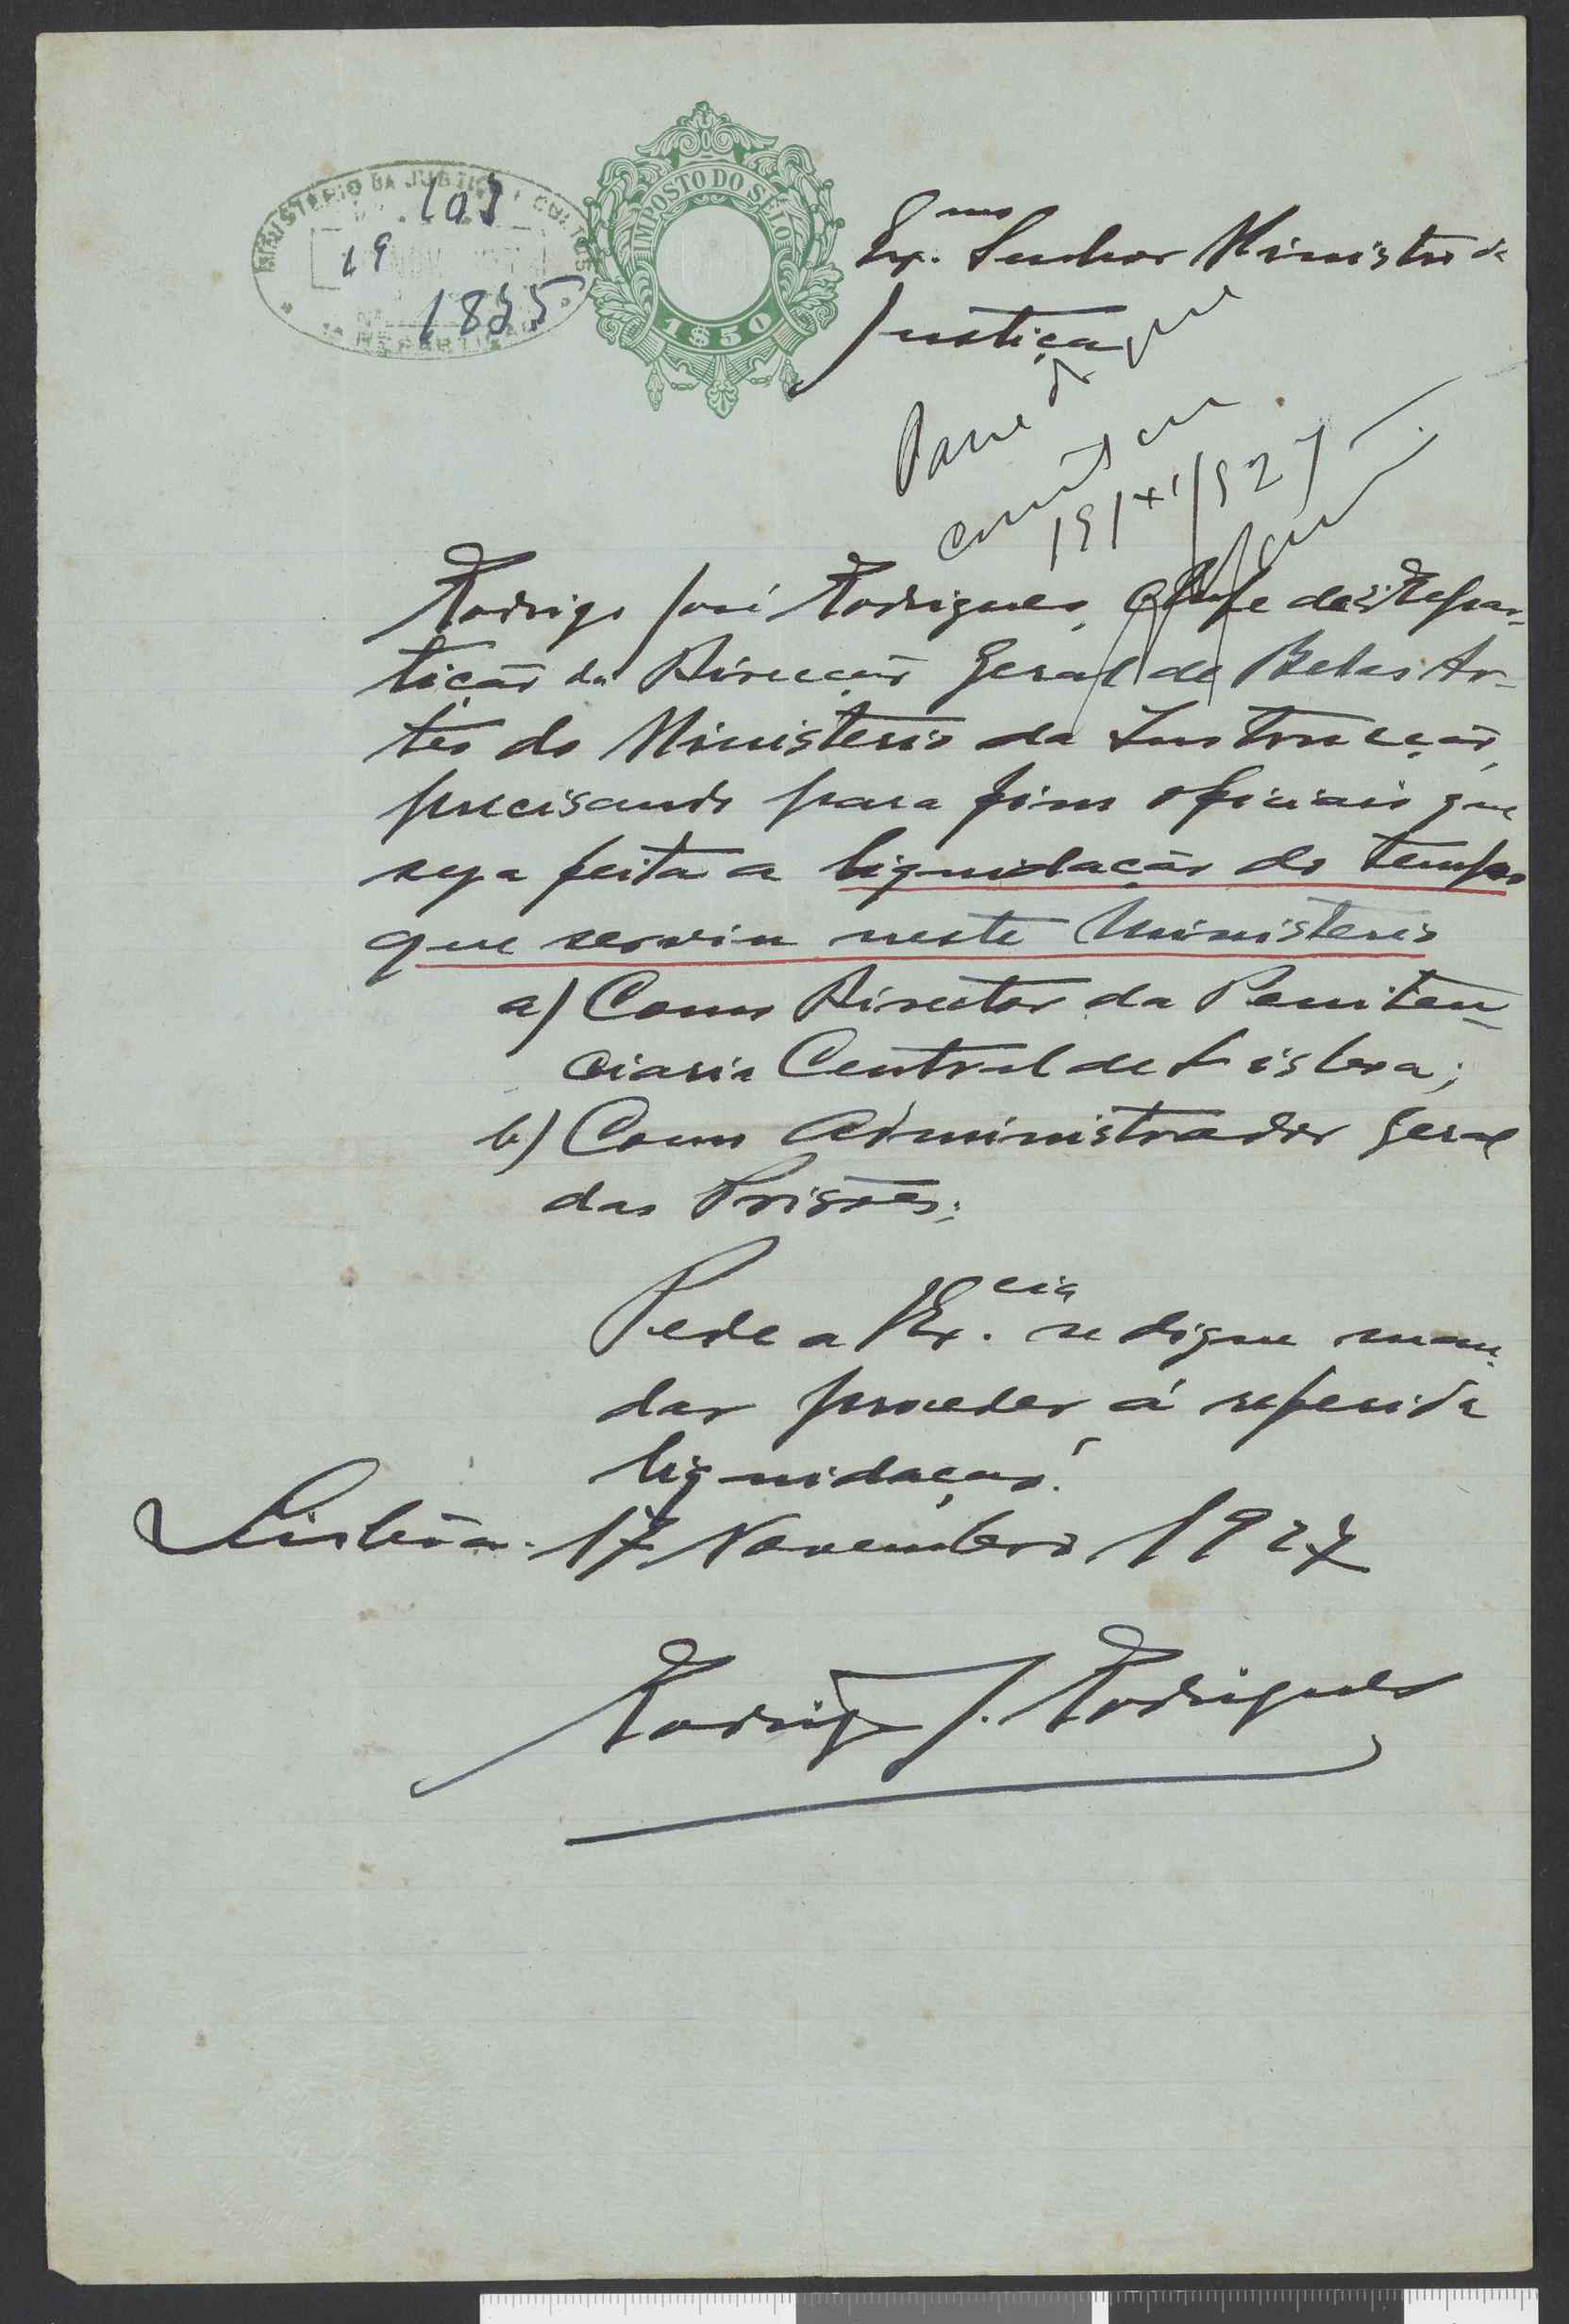 MINISTERIO DA JUSTIÇA E CULTOS
19
REPARTIÇÃO
IMPOSTO DO SELO
1$50
Ex.mo Senhor Ministro da
Justiça
Passe do que
constar
19/XI/927
Rodrigo José Rodrigues, chefe de Repar-
tição da Direcção Geral de Belas Ar-
tes do Ministerio da Instrucção,
precisando para fins oficiais que
seja feita a liquidação do tempo
que serviu neste Ministerio
a) Como Director da Peniten-
ciaria Central de Lisboa;
b) Como Administrador Geral
das Prisões;
Pede a V. Ex.cia se digne man-
dar proceder á referida
liquidação.
Lisbôa. 17 Novembro 1927
Rodrigo J. Rodrigues